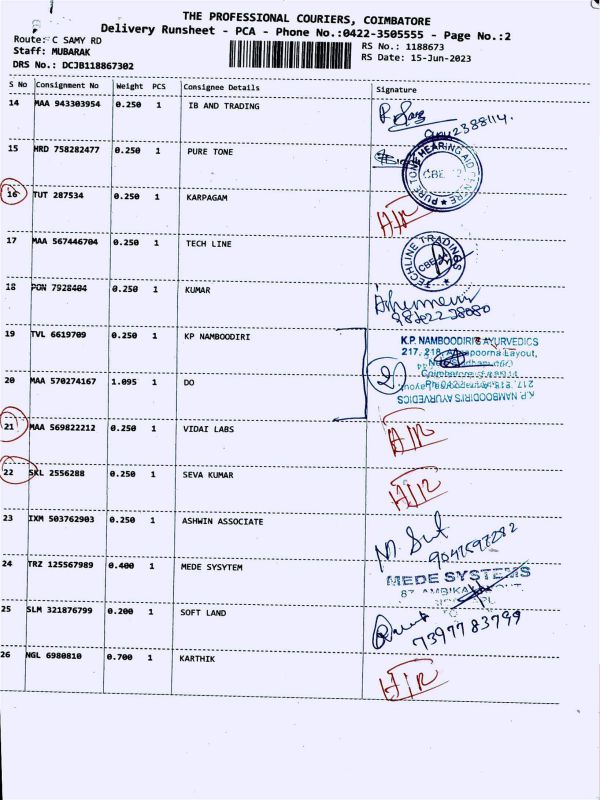 THE PROFESSIONAL COURIERS, COIMBATORE
Delivery Runsheet - PCA - Phone No.:0422-3505555 - Page No.:2
Route: C SAMY RD
RS No.: 1188673
Staff: MUBARAK
RS Date: 15-Jun-2023
DRS No.: DCJB118867302
S No Consignment No Weight PCS Consignee Details Signature
14 MAA 943303954 0.250 1 IB AND TRADING
15 HRD 758282477 0.250 1 PURE TONE
PURE TONE HEARING AID CENTRE
CBE
16 TUT 287534 0.250 1 KARPAGAM
17 MAA 567446704 0.250 1 TECH LINE
TECHLINE TRADINGS
CBE
18 PON 7928404 0.250 1 KUMAR
19 TVL 6619709 0.250 1 KP NAMBOODIRI
K.P. NAMBOODIRI'S AYURVEDICS
217, 218, Layout,
20 MAA 570274167 1.095 1 DO
2
K.P. NAMBOODIRI'S AYURVEDICS
21 MAA 569822212 0.250 1 VIDAI LABS
22 SKL 2556288 0.250 1 SEVA KUMAR
23 IXM 503762903 0.250 1 ASHWIN ASSOCIATE
24 TRZ 125567989 0.400 1 MEDE SYSYTEM
MEDE SYSTEMS
25 SLM 321876799 0.200 1 SOFT LAND
7397783799
26 NGL 6980810 0.700 1 KARTHIK